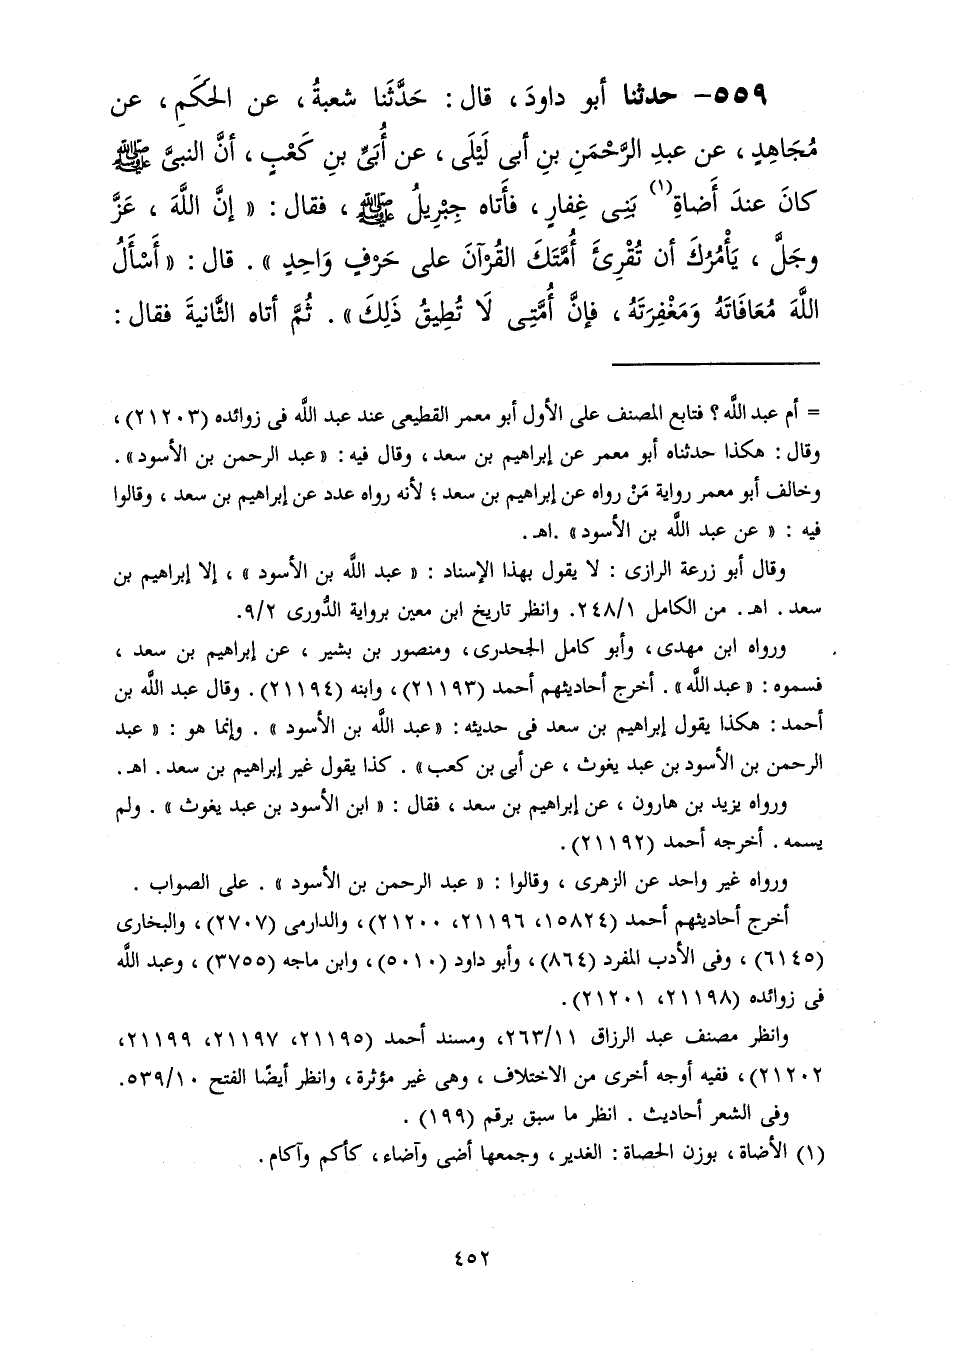 ٥٥٩- حدثنا أبو داودَ ، قال : حَدَّثَنا شعبةُ ، عن الحَكَمِ ، عن
مُجَاهِدٍ ، عن عبدِ الرَّحْمَنِ بنِ أبى لَيْلَى ، عن أُبَىِّ بنِ كَعْبٍ ، أنَّ النبىَّ ﷺ
كانَ عندَ أَضاةِ(١) بَنِى غِفارٍ ، فأَتاه جِبْرِيلُ ﷺ ، فقال : « إنَّ اللَّهَ ، عَزَّ
وجَلَّ ، يَأْمُرُكَ أن تُقْرِئَ أُمَّتَكَ القُرْآنَ على حَرْفٍ وَاحِدٍ » . قال : « أَسْأَلُ
اللَّهَ مُعَافَاتَهُ وَمَغْفِرَتَهُ ، فإنَّ أُمَّتِى لَا تُطِيقُ ذَلِكَ » . ثُمَّ أتاه الثَّانيةَ فقال :
= أم عبد اللَّه ؟ فتابع المصنف على الأول أبو معمر القطيعى عند عبد اللَّه فى زوائده (٢١٢٠٣) ،
وقال : هكذا حدثناه أبو معمر عن إبراهيم بن سعد ، وقال فيه : « عبد الرحمن بن الأسود » .
وخالف أبو معمر رواية مَنْ رواه عن إبراهيم بن سعد ؛ لأنه رواه عدد عن إبراهيم بن سعد ، وقالوا
فيه : « عن عبد اللَّه بن الأسود » .اهـ.
وقال أبو زرعة الرازى : لا يقول بهذا الإسناد : « عبد اللَّه بن الأسود » ، إلا إبراهيم بن
سعد . اهـ. من الكامل ٢٤٨/١. وانظر تاريخ ابن معين برواية الدُّورى ٩/٢.
ورواه ابن مهدى ، وأبو كامل الجحدرى ، ومنصور بن بشير ، عن إبراهيم بن سعد ،
فسموه : « عبد اللَّه » . أخرج أحاديثهم أحمد (٢١١٩٣) ، وابنه (٢١١٩٤) . وقال عبد اللَّه بن
أحمد : هكذا يقول إبراهيم بن سعد فى حديثه : « عبد اللَّه بن الأسود » . وإنما هو : « عبد
الرحمن بن الأسود بن عبد يغوث ، عن أبى بن كعب » . كذا يقول غير إبراهيم بن سعد . اهـ.
ورواه يزيد بن هارون ، عن إبراهيم بن سعد ، فقال : « ابن الأسود بن عبد يغوث » . ولم
يسمه . أخرجه أحمد (٢١١٩٢) .
ورواه غير واحد عن الزهرى ، وقالوا : « عبد الرحمن بن الأسود » . على الصواب .
أخرج أحاديثهم أحمد (١٥٨٢٤، ٢١١٩٦، ٢١٢٠٠) ، والدارمى (٢٧٠٧) ، والبخارى
(٦١٤٥) ، وفى الأدب المفرد (٨٦٤) ، وأبو داود (٥٠١٠) ، وابن ماجه (٣٧٥٥) ، وعبد اللَّه
فى زوائده (٢١١٩٨، ٢١٢٠١) .
وانظر مصنف عبد الرزاق ٢٦٣/١١، ومسند أحمد (٢١١٩٥، ٢١١٩٧، ٢١١٩٩،
٢١٢٠٢) ، ففيه أوجه أخرى من الاختلاف ، وهى غير مؤثرة ، وانظر أيضًا الفتح ٥٣٩/١٠.
وفى الشعر أحاديث . انظر ما سبق برقم (١٩٩) .
(١) الأضاة ، بوزن الحصاة : الغدير ، وجمعها أضى وآضاء ، كأكم وآكام .
٤٥٢